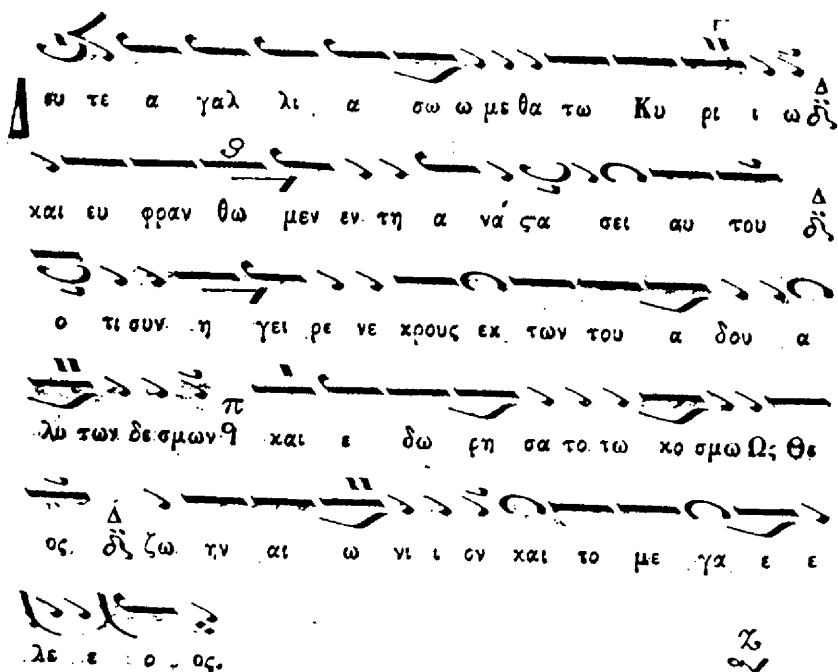 Δευ τε α γαλ λι α σω ω με θα τω Κυ ρι ι ω Δ
και ευ φραν θω μεν εν τη α νά ϛα σει αυ του Δ
ο τι συν η γει ρε νε κρους εκ των του α δου α
λύ των δε σμων π q και ε δω ρη σα το τω κο σμω Ως Θε
ος. Δ ζω ην αι ω νι ι ον και το με γα ε ε
λε ε ο ος.